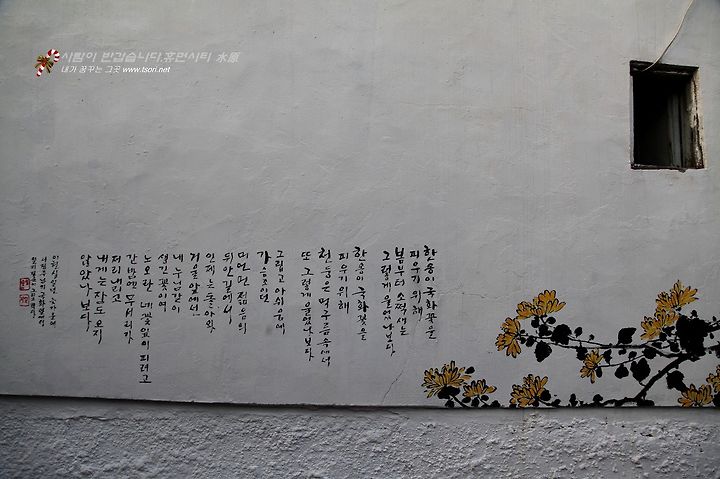 사람이 반갑습니다.휴먼시티 水原
내가 꿈꾸는 그곳 www.tsori.net
한송이 국화꽃을
피우기 위해
봄부터 소쩍새는
그렇게 울었나보다
한송이 국화꽃을
피우기 위해
천둥은 먹구름속에서
또 그렇게 울었나보다
그립고 아쉬움에
가슴조이던
머언먼 젊음의
뒤안길에서
인제는 돌아와
거울앞에서
내 누님같이
생긴 꽃이여
노오란 네 꽃잎이 피려고
간밤엔 무서리가
저리 내리고
내게는 잠도 오지
않았나보다